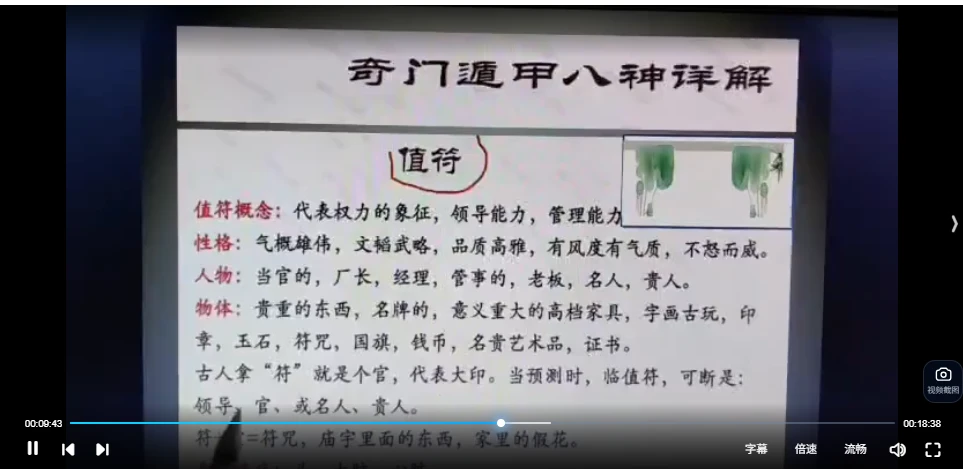 奇门遁甲八神详解
值符
值符概念：代表权力的象征，领导能力，管理能力
性格：气概雄伟，文韬武略，品质高雅，有风度有气质，不怒而威。
人物：当官的，厂长，经理，管事的，老板，名人，贵人。
物体：贵重的东西，名牌的，意义重大的高档家具，字画古玩，印
章，玉石，符咒，国旗，钱币，名贵艺术品，证书。
古人拿“符”就是个官，代表大印。当预测时，临值符，可断是：
领导、官、或名人、贵人。
00:09:43
00:18:38
=符咒，庙宇里面的东西，家里的假花。
视频截图
字幕
倍速
流畅